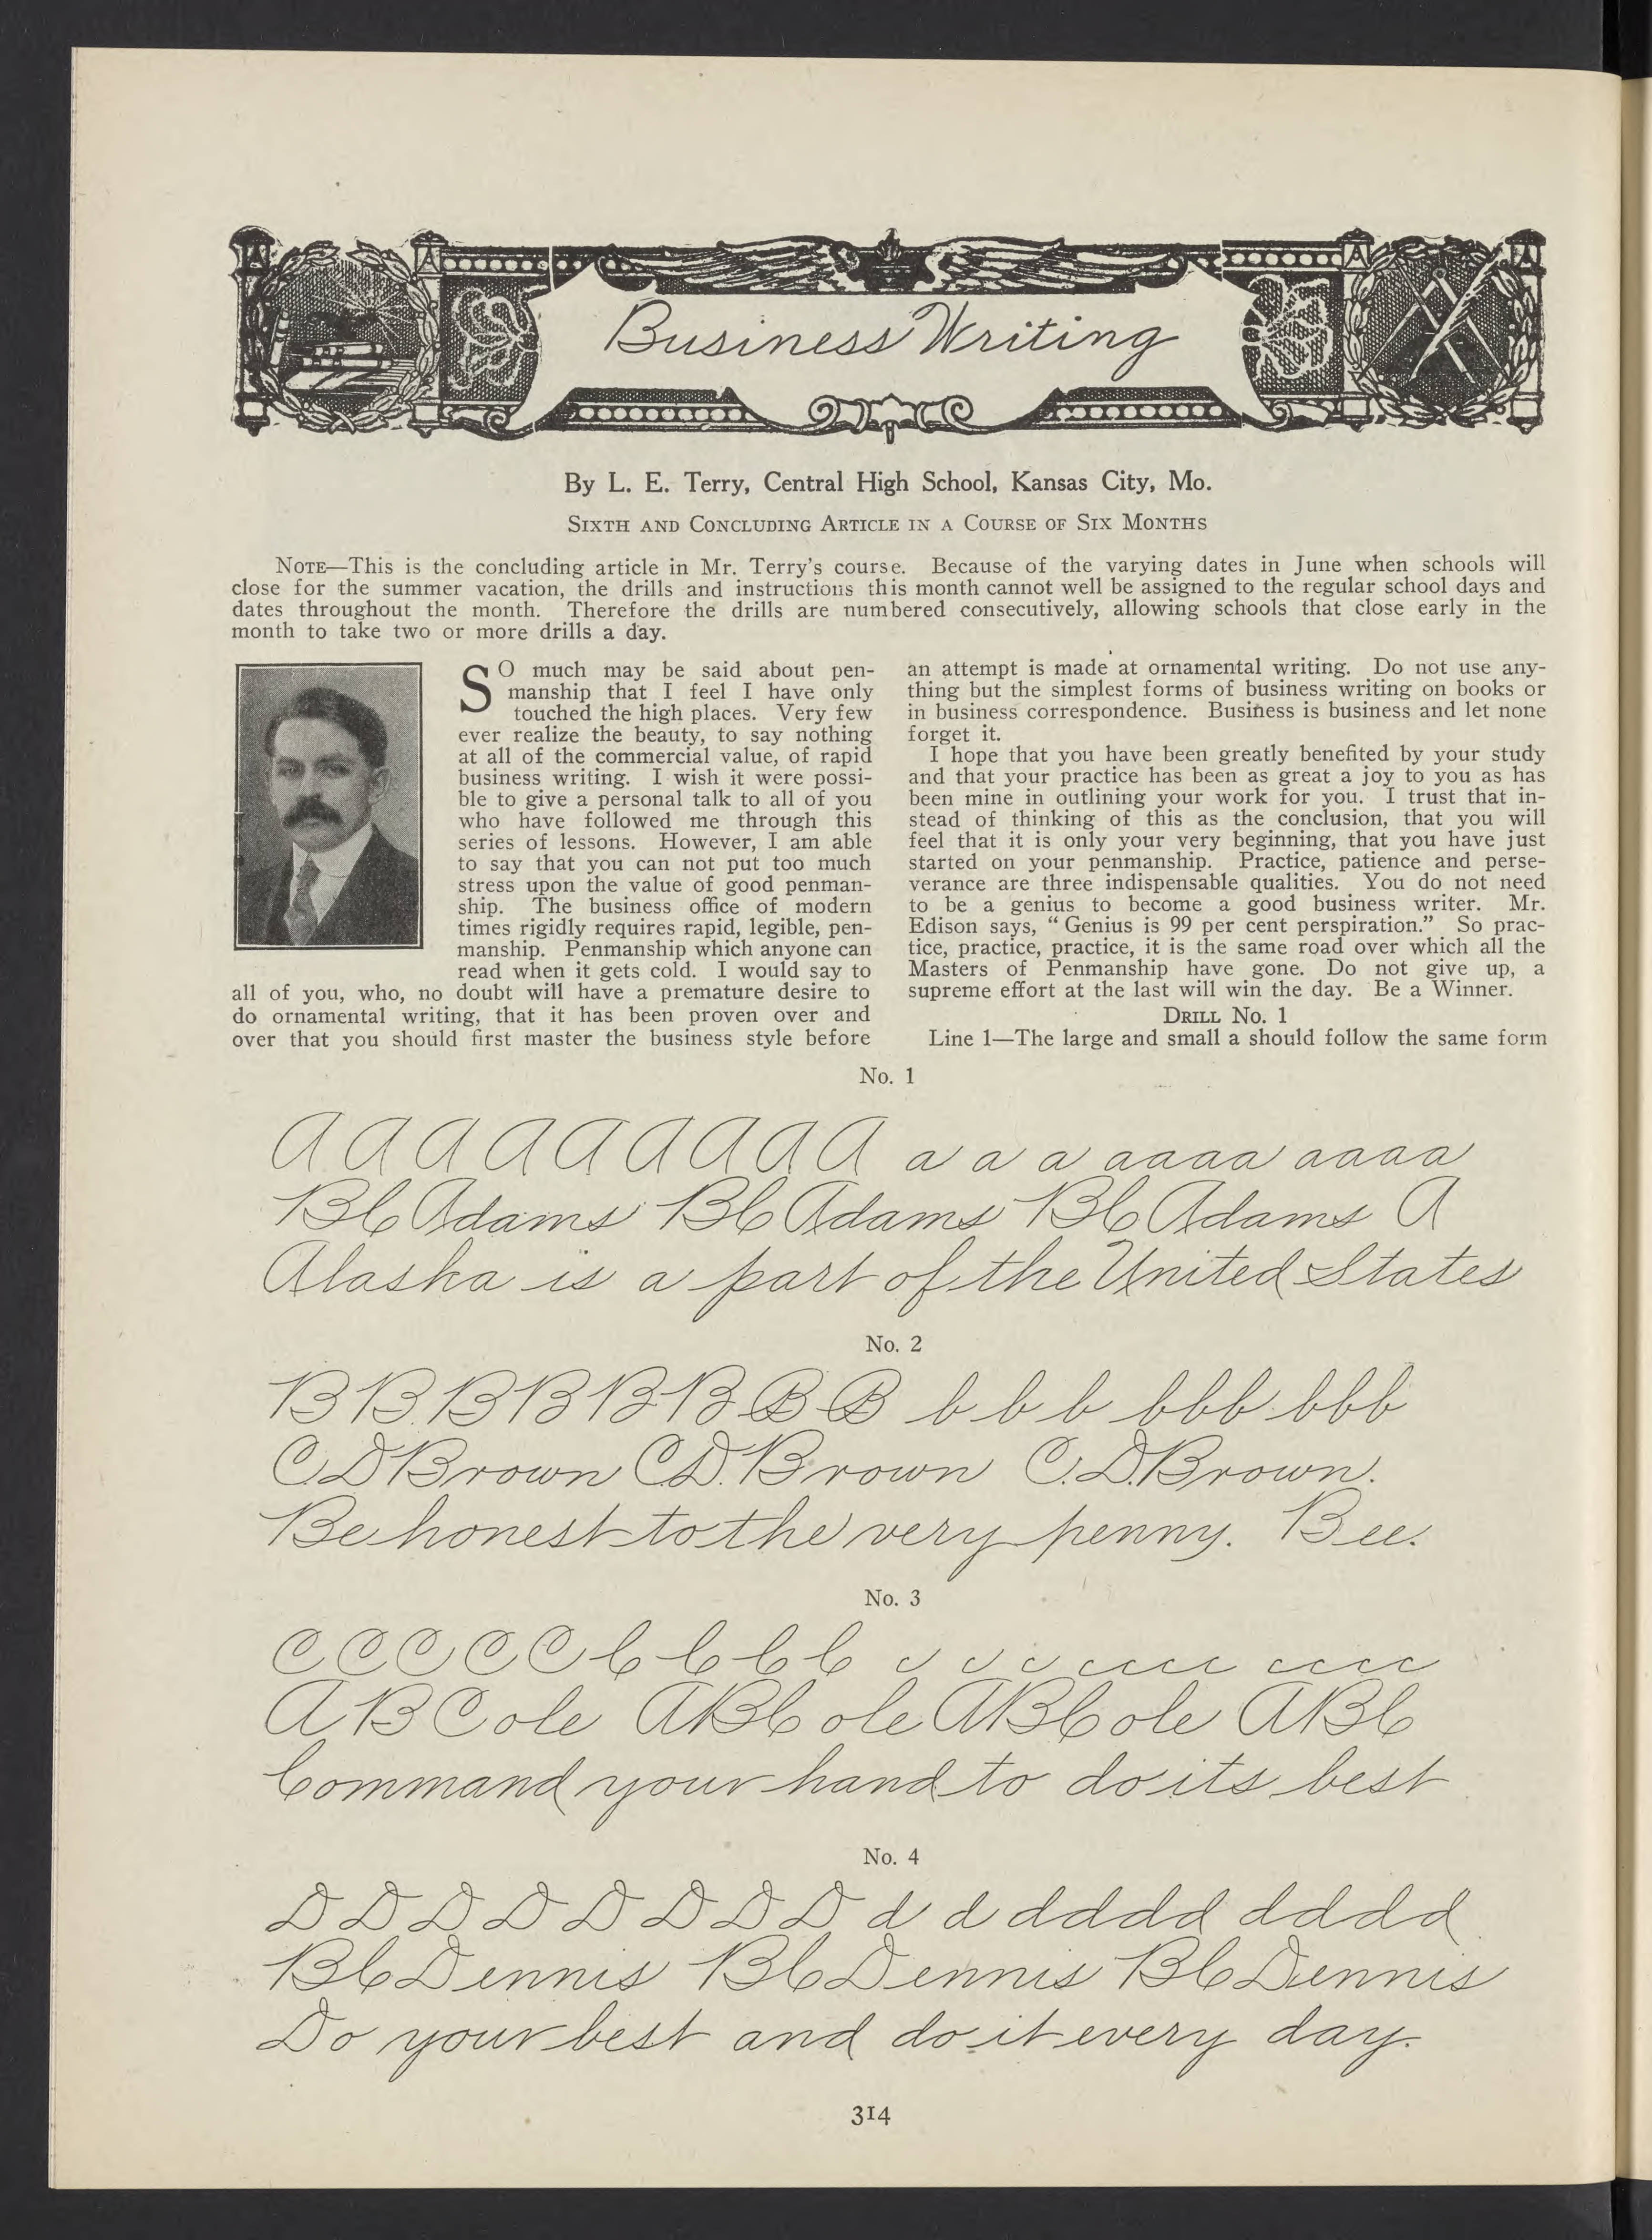 Business Writing
By L. E. Terry, Central High School, Kansas City, Mo.
SIXTH AND CONCLUDING ARTICLE IN A COURSE OF SIX MONTHS
NOTE—This is the concluding article in Mr. Terry's course. Because of the varying dates in June when schools will
close for the summer vacation, the drills and instructions this month cannot well be assigned to the regular school days and
dates throughout the month. Therefore the drills are numbered consecutively, allowing schools that close early in the
month to take two or more drills a day.
SO much may be said about pen-
manship that I feel I have only
touched the high places. Very few
ever realize the beauty, to say nothing
at all of the commercial value, of rapid
business writing. I wish it were possi-
ble to give a personal talk to all of you
who have followed me through this
series of lessons. However, I am able
to say that you can not put too much
stress upon the value of good penman-
ship. The business office of modern
times rigidly requires rapid, legible, pen-
manship. Penmanship which anyone can
read when it gets cold. I would say to
all of you, who, no doubt will have a premature desire to
do ornamental writing, that it has been proven over and
over that you should first master the business style before
an attempt is made at ornamental writing. Do not use any-
thing but the simplest forms of business writing on books or
in business correspondence. Business is business and let none
forget it.
I hope that you have been greatly benefited by your study
and that your practice has been as great a joy to you as has
been mine in outlining your work for you. I trust that in-
stead of thinking of this as the conclusion, that you will
feel that it is only your very beginning, that you have just
started on your penmanship. Practice, patience and perse-
verance are three indispensable qualities. You do not need
to be a genius to become a good business writer. Mr.
Edison says, "Genius is 99 per cent perspiration." So prac-
tice, practice, practice, it is the same road over which all the
Masters of Penmanship have gone. Do not give up, a
supreme effort at the last will win the day. Be a Winner.
DRILL No. 1
Line 1—The large and small a should follow the same form
No. 1
A A A A A A A A A a a a aaaa aaaa
BC Adams BC Adams BC Adams A
Alaska is a part of the United States
No. 2
B B B B B B B B b b b bbb bbb
C.D Brown C.D. Brown C.D. Brown.
Be honest to the very penny. Bee.
No. 3
C C C C C C C C C c c c cccc cccc
A B Cole A B Cole A B Cole A B C
Command your hand to do its best
No. 4
D D D D D D D D d d dddd dddd
BC Dennis BC Dennis BC Dennis
Do your best and do it every day.
314